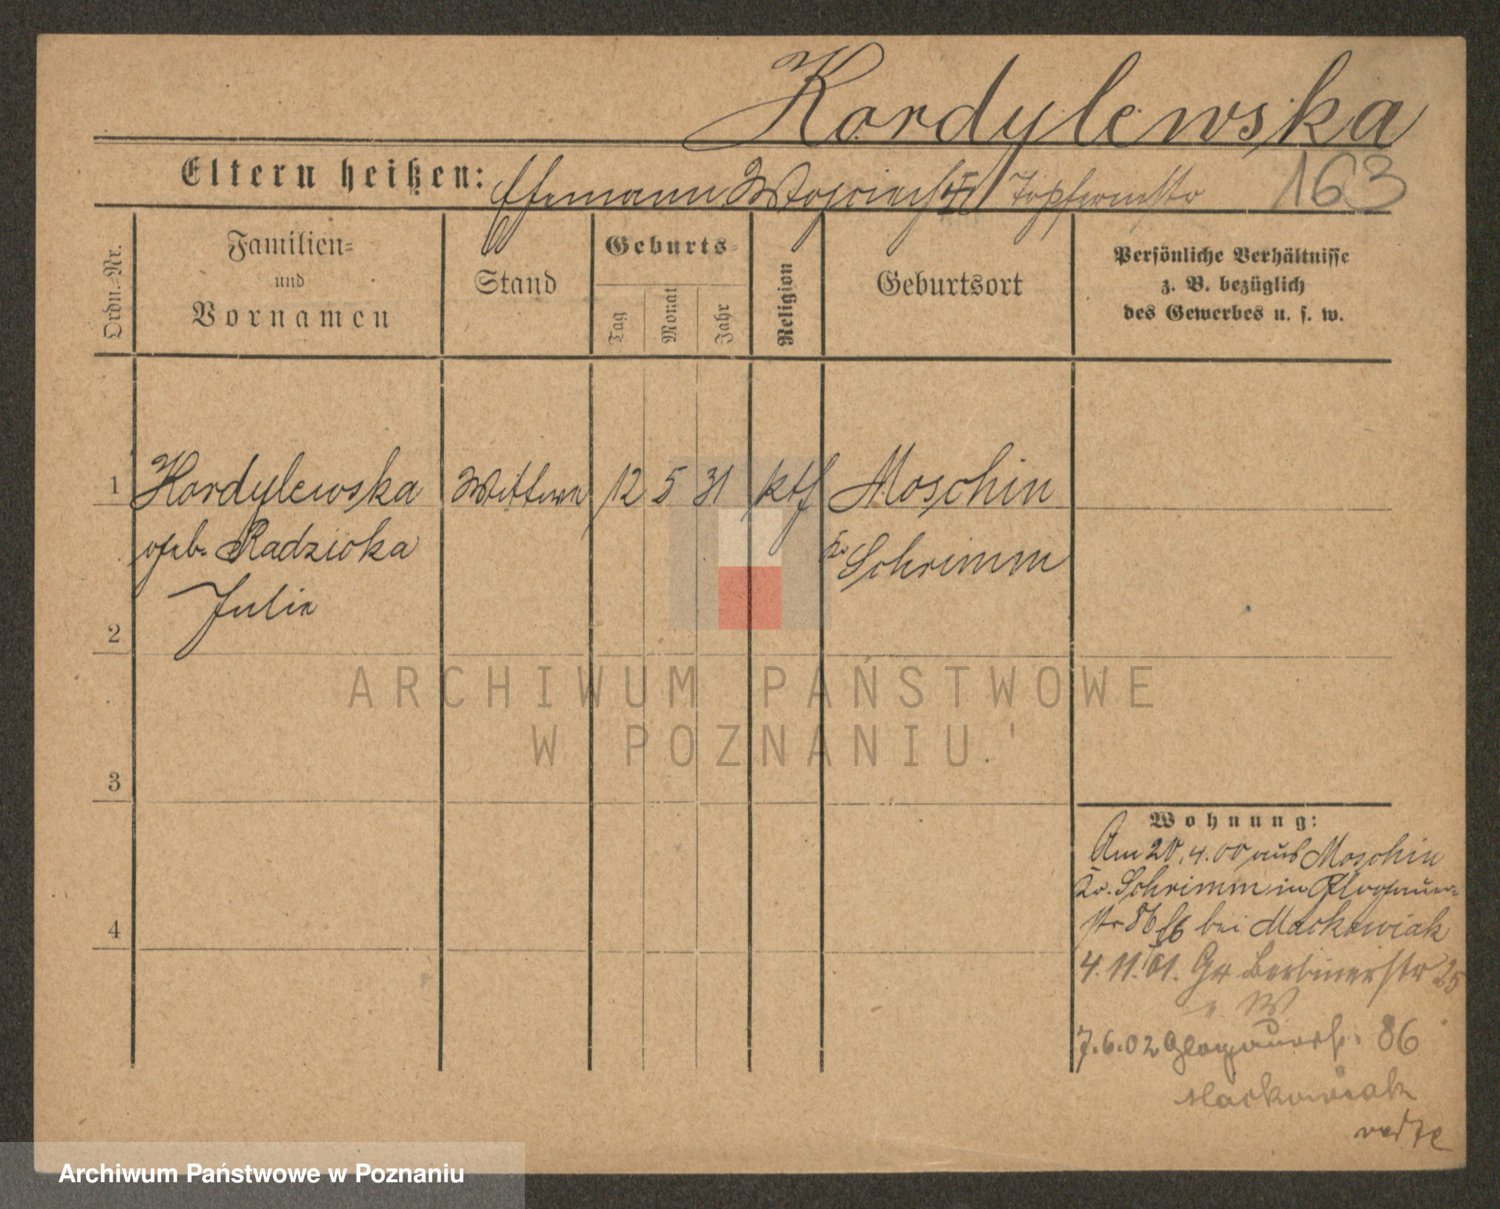 Kordylewska
Eltern heißen: Ehemann Wojciech Töpfermstr
163
Ordn.-Nr.
Familien-
und
Vornamen
Stand
Geburts-
Tag
Monat
Jahr
Religion
Geburtsort
Persönliche Verhältnisse
z. B. bezüglich
des Gewerbes u. s. w.
1 Kordylewska Wittwe 12 5 31 kth Moschin
geb. Radzicka Kr. Schrimm
Julie
2
ARCHIWUM PAŃSTWOWE
W POZNANIU
3
Wohnung:
Am 20.4.00 aus Moschin
Kr. Schrimm in Glogauer-
str 86 bei Mackowiak
4
4.11.01. Gr Berlinerstr 25
7.6.02 Glogauerstr. 86
Mackowiak
verte
Archiwum Państwowe w Poznaniu